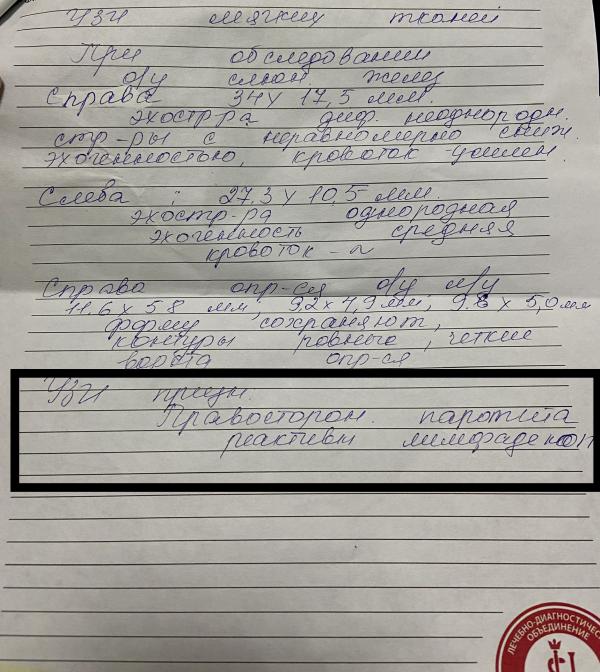 УЗИ мягких тканей
При обследовании
о/у слюн желез
Справа 34 х 17,5 мм.
эхостр-ра диф. неоднородн.
стр-ры с неравномерно сниж.
эхогенностью, кровоток усилен.
Слева : 27,3 х 10,5 мм.
эхостр-ра однородная
эхогенность средняя
кровоток - N
Справа опр-ся о/у л/у
11,6 х 5 8 мм, 9,2 х 4,9 мм, 9.8 х 5,0 мм
форму сохраняют,
контуры ровные, четкие
ворота опр-ся
УЗИ призн.
Правосторон. паротита
реактивн лимфаденоп
ЛЕЧЕБНО-ДИАГНОСТИЧЕСК
ОБЪЕДИНЕНИЕ